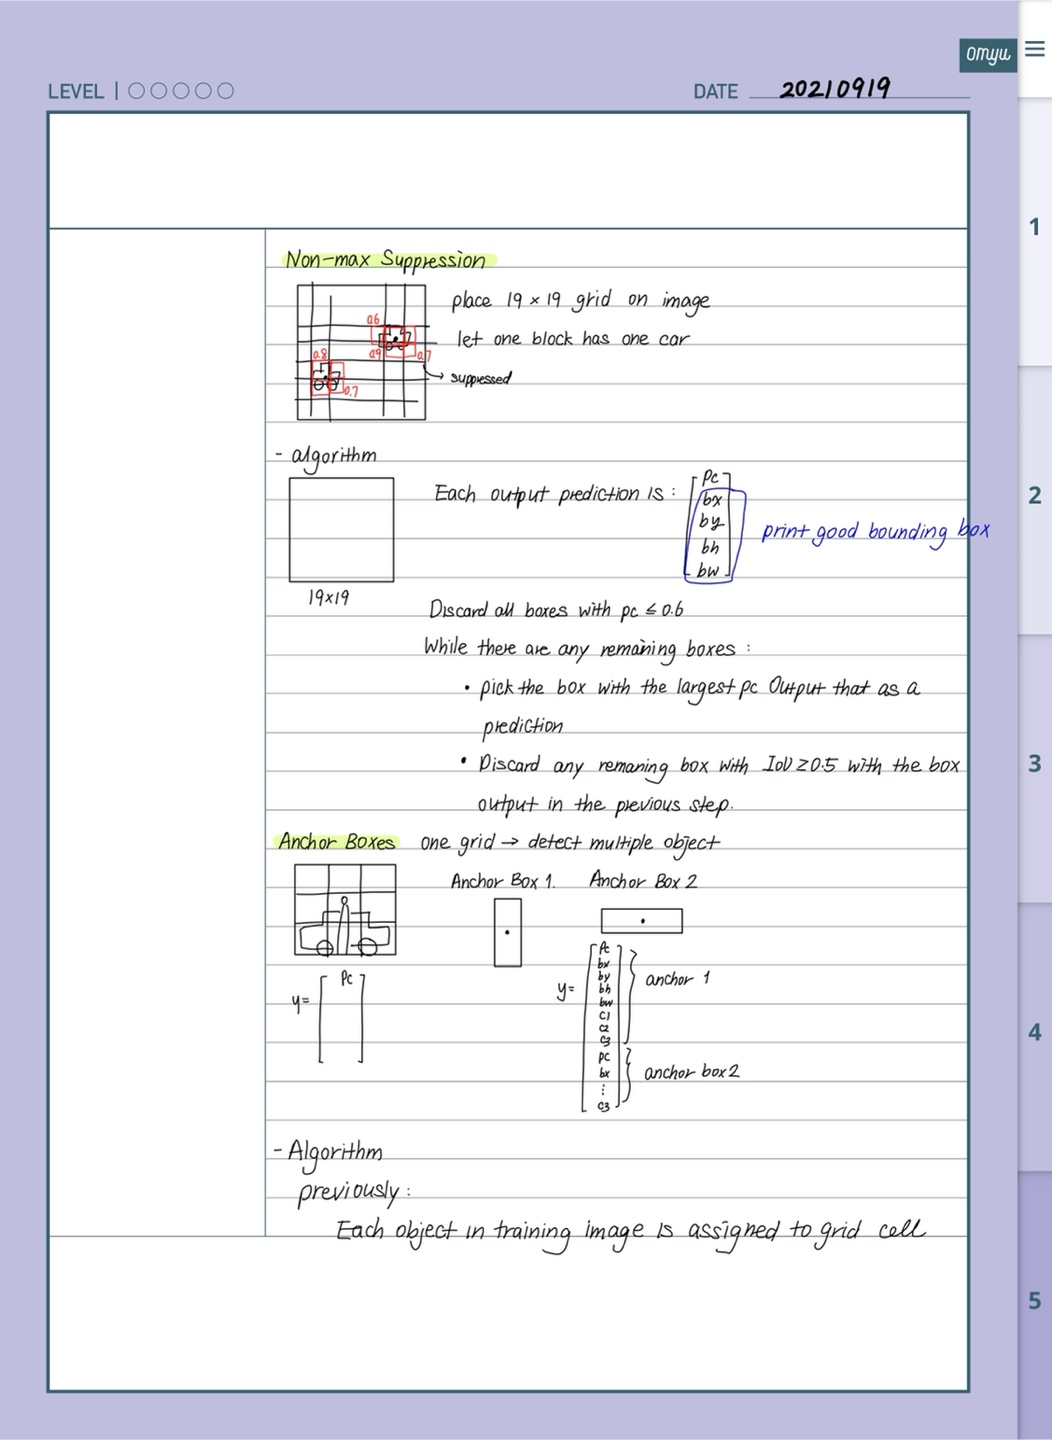 omyu
LEVEL
DATE 20210919
Non-max Suppression
place 19 × 19 grid on image
let one block has one car
0.6
0.9
0.7
0.8
0.7
suppressed
- algorithm
Each output prediction is :
Pc
bx
by
bh
bw
print good bounding box
19×19
Discard all boxes with pc ≤ 0.6
While there are any remaining boxes :
• pick the box with the largest pc Output that as a
prediction
• Discard any remaning box with IoU ≥ 0.5 with the box
output in the previous step.
Anchor Boxes one grid → detect multiple object
Anchor Box 1. Anchor Box 2
y=
Pc
y=
Pc
bx
by
bh
bw
C1
C2
C3
anchor 1
Pc
bx
⋮
C3
anchor box 2
- Algorithm
previously :
Each object in training image is assigned to grid cell
1
2
3
4
5